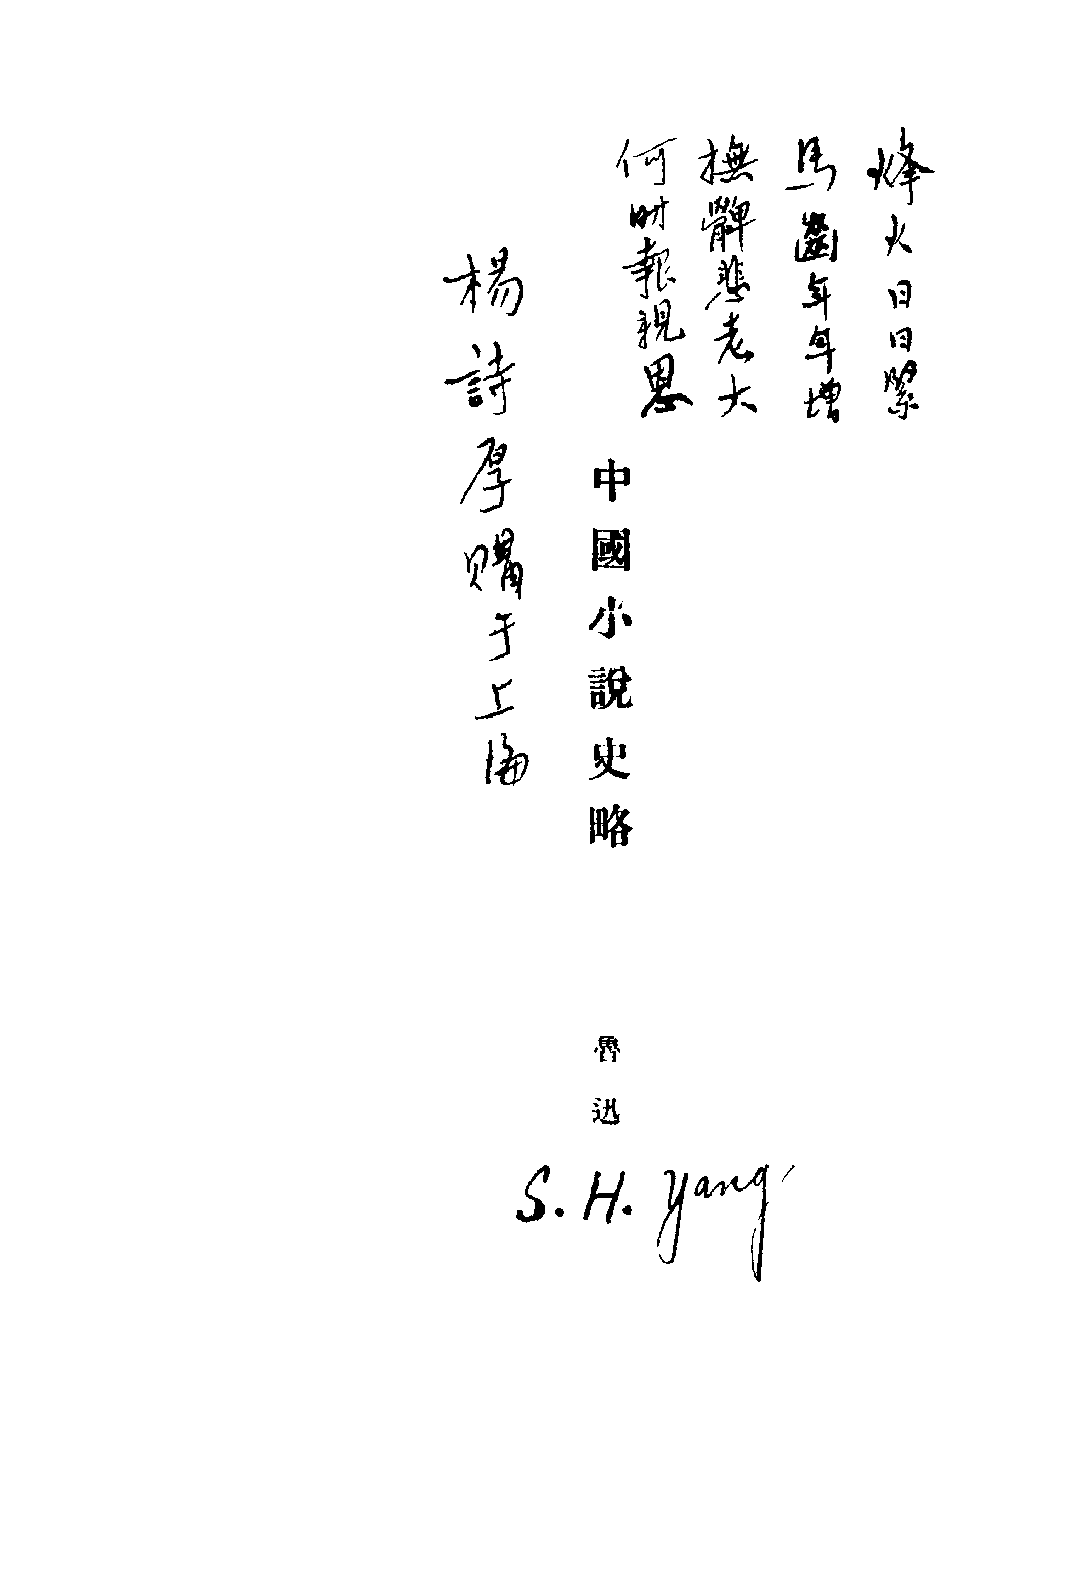 烽火日日緊
馬齒年年增
撫髀悲老大
何時報親恩
中國小說史略
楊詩厚購于上海
魯迅
S. H. Yang